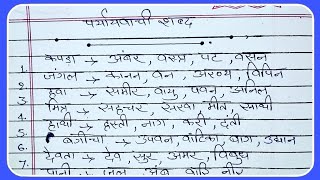 पर्यायवाची शब्द
1. कपड़ा → अंबर, वस्त्र, पट, वसन
2. जंगल → कानन, वन, अरण्य, विपिन
3. हवा → समीर, वायु, पवन, अनिल
4. मित्र → सहचर, सखा मीत, साथी
5. हाथी → हस्ती, नाग, करी, दंती
6. बगीचा → उपवन, वाटिका, बाग, उद्यान
7. देवता → देव, सुर, अमर, विबुध
पानी → जल अंबु वारि नीर